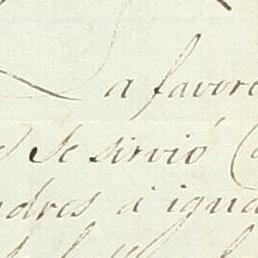 a favore
Se sirvió
ndres á igua